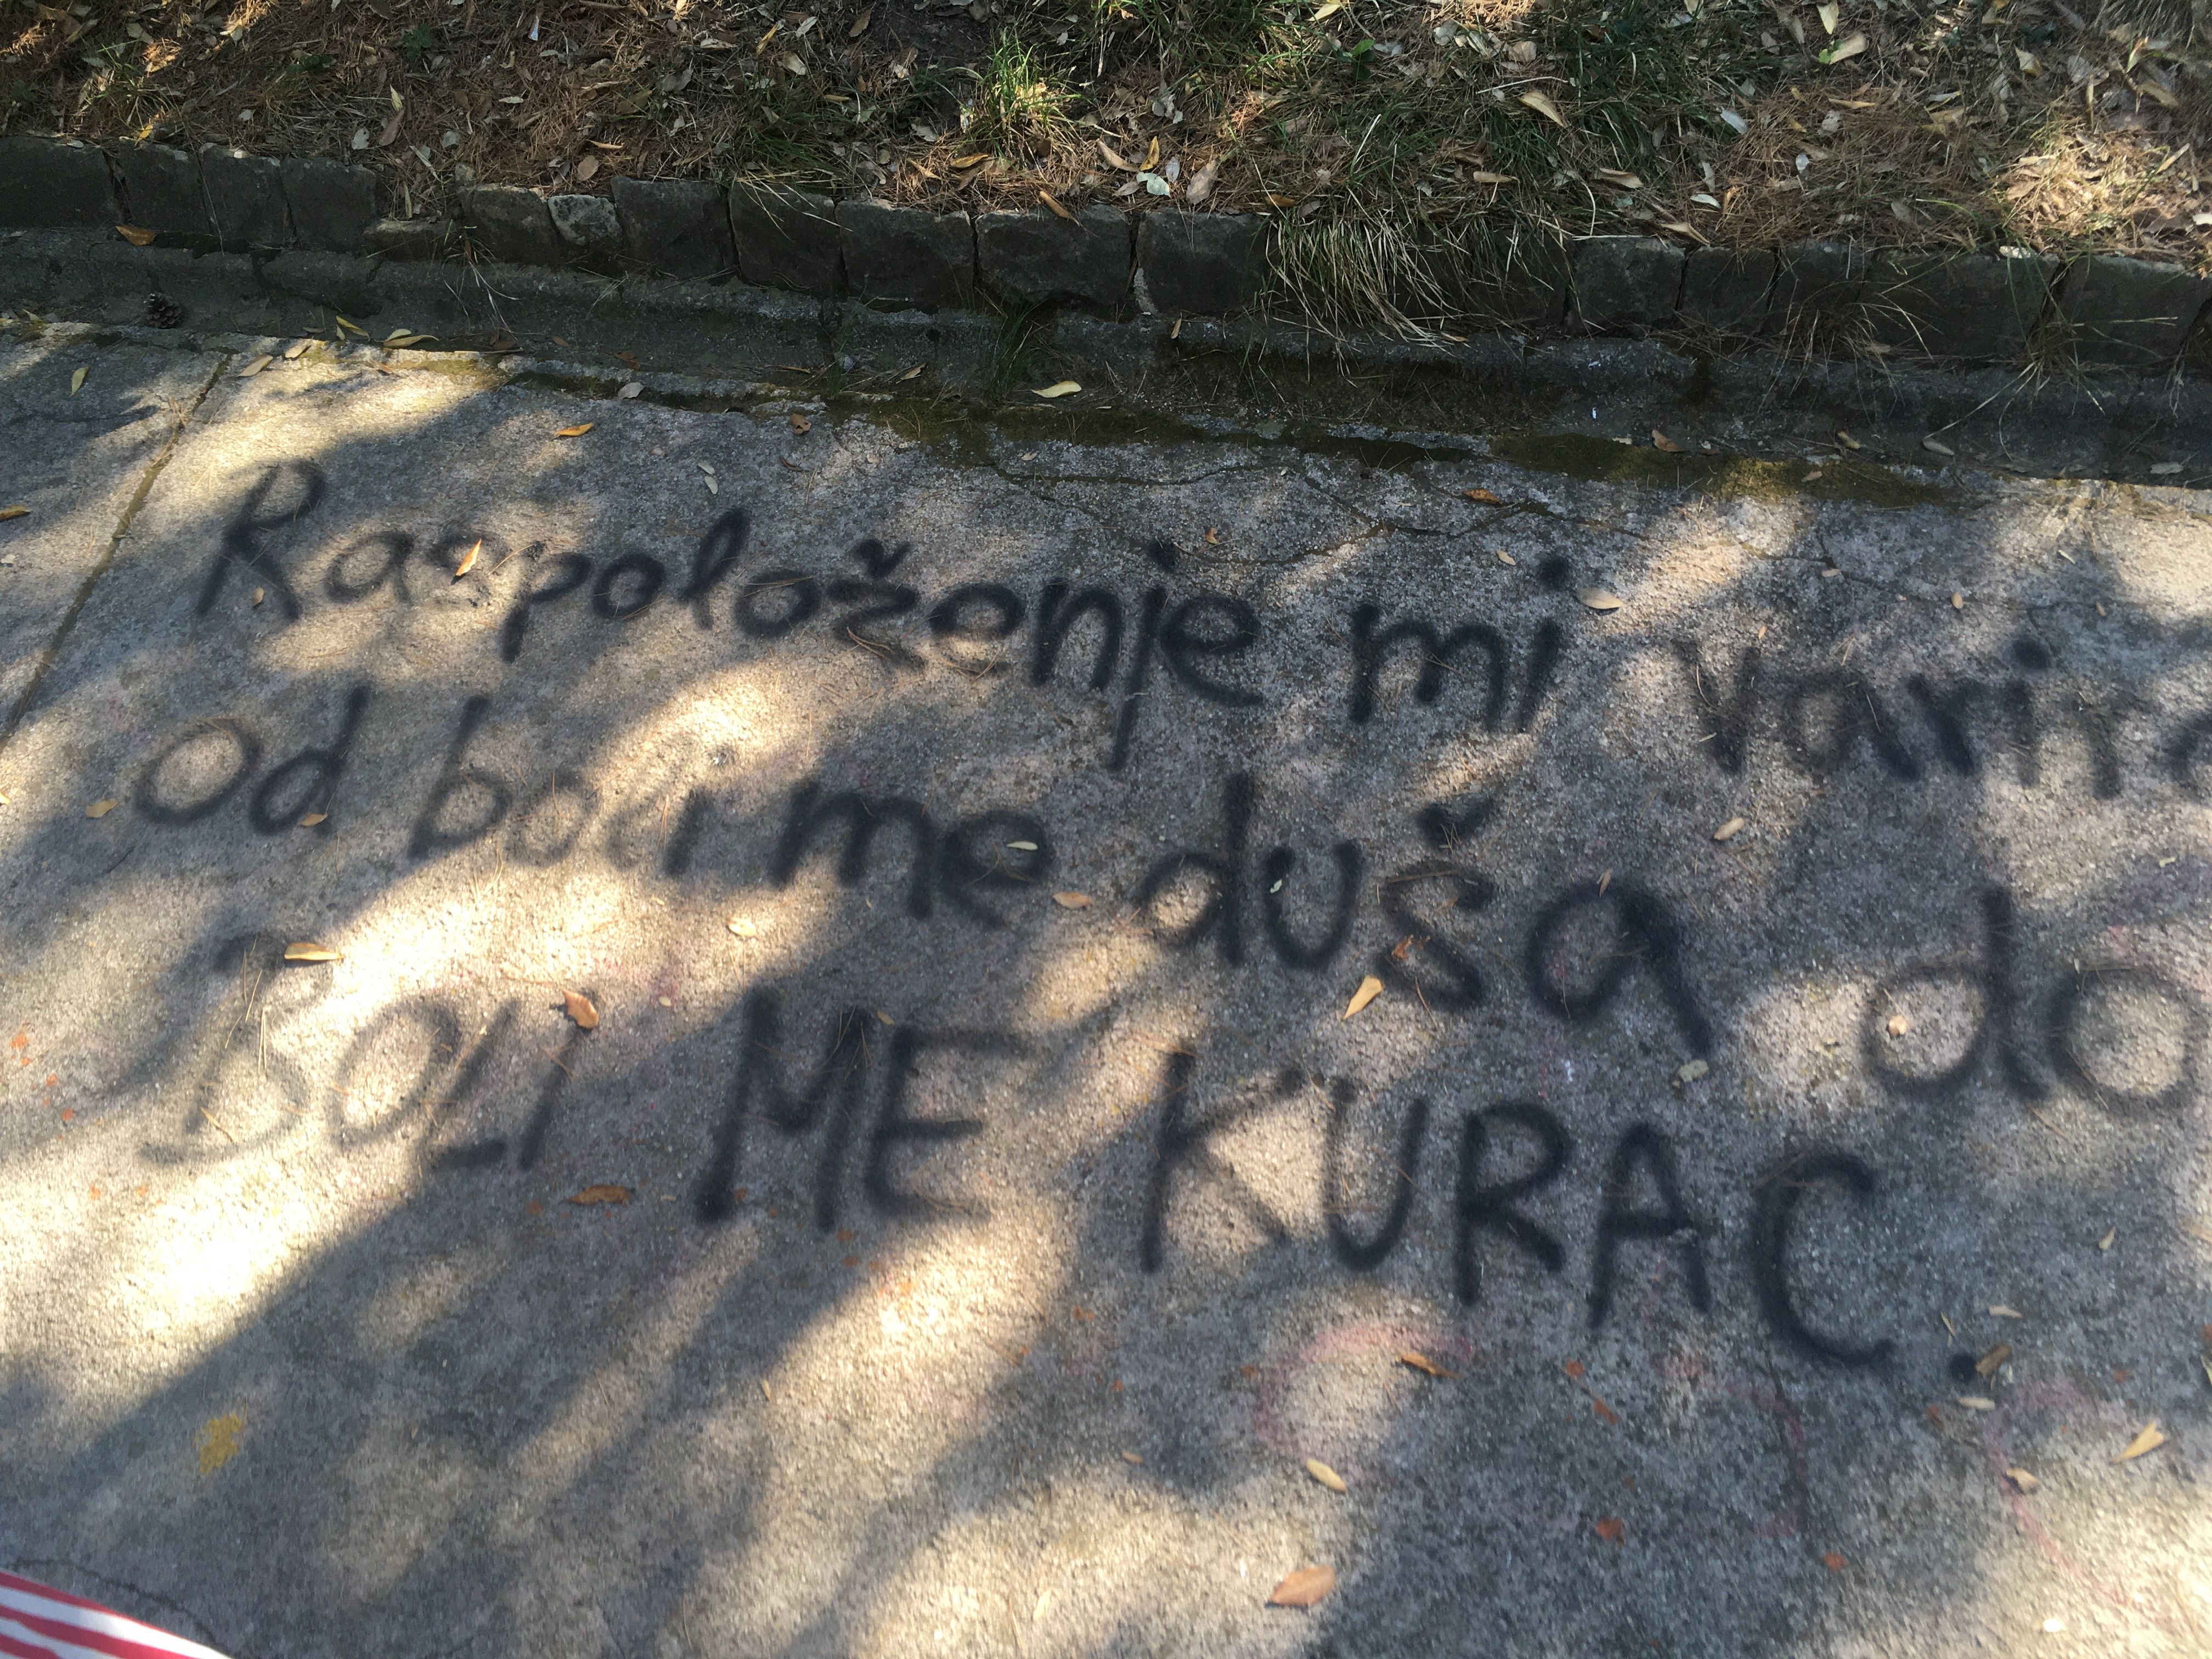 Raspoloženje mi varira
od boli me duša do
BOLI ME KURAC.